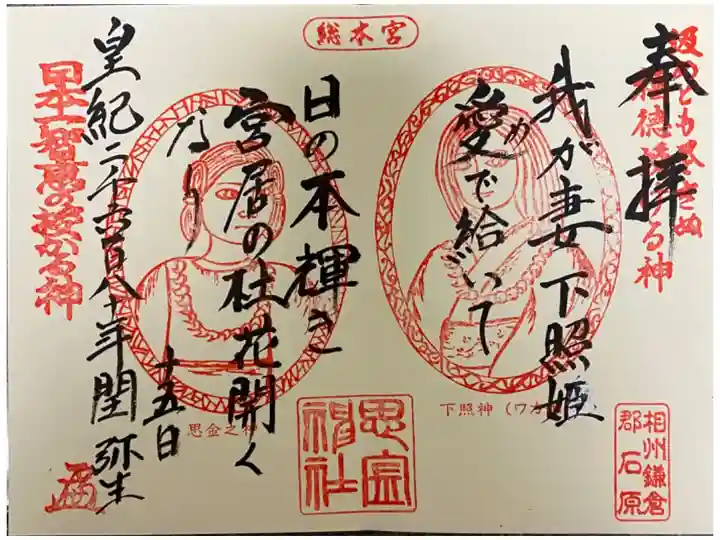 総本宮
奉拝
我が妻下照姫
愛で給いて
め
日の本輝き
宮居の杜花開く
なり
皇紀二千六百八十年閏弥生
十五日
日本一智恵の授かる神
る神
下照神（ワカ
思金之神
思金神社
相州鎌倉
郡石原